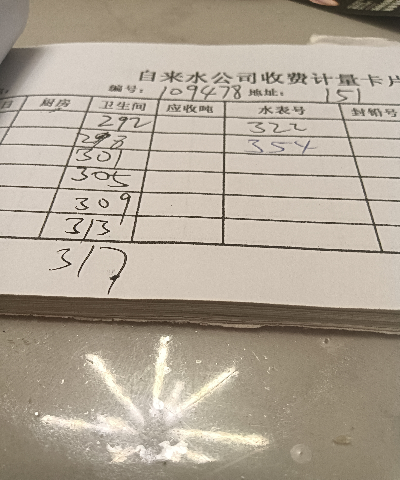 自来水公司收费计量卡片
编号: 109478 地址: 151
厨房 卫生间 应收吨 水表号 封铅号
292 322
298 354
301
305
309
313
317